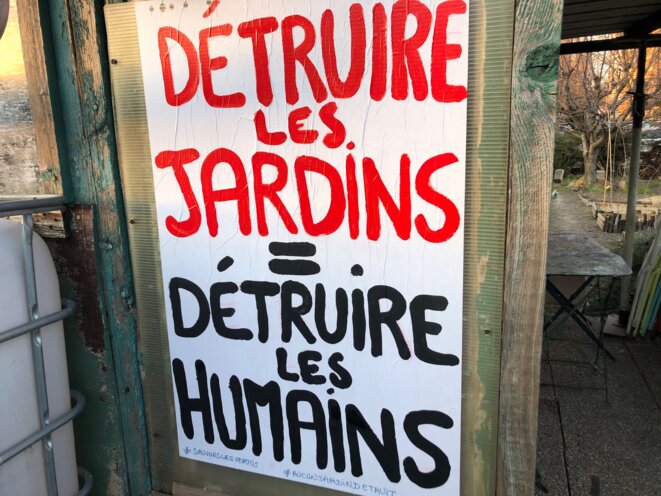 DÉTRUIRE
LES
JARDINS
=
DÉTRUIRE
LES
HUMAINS
#SAUVONSLESVERTUS #AUCUNJARDINDETRUIT